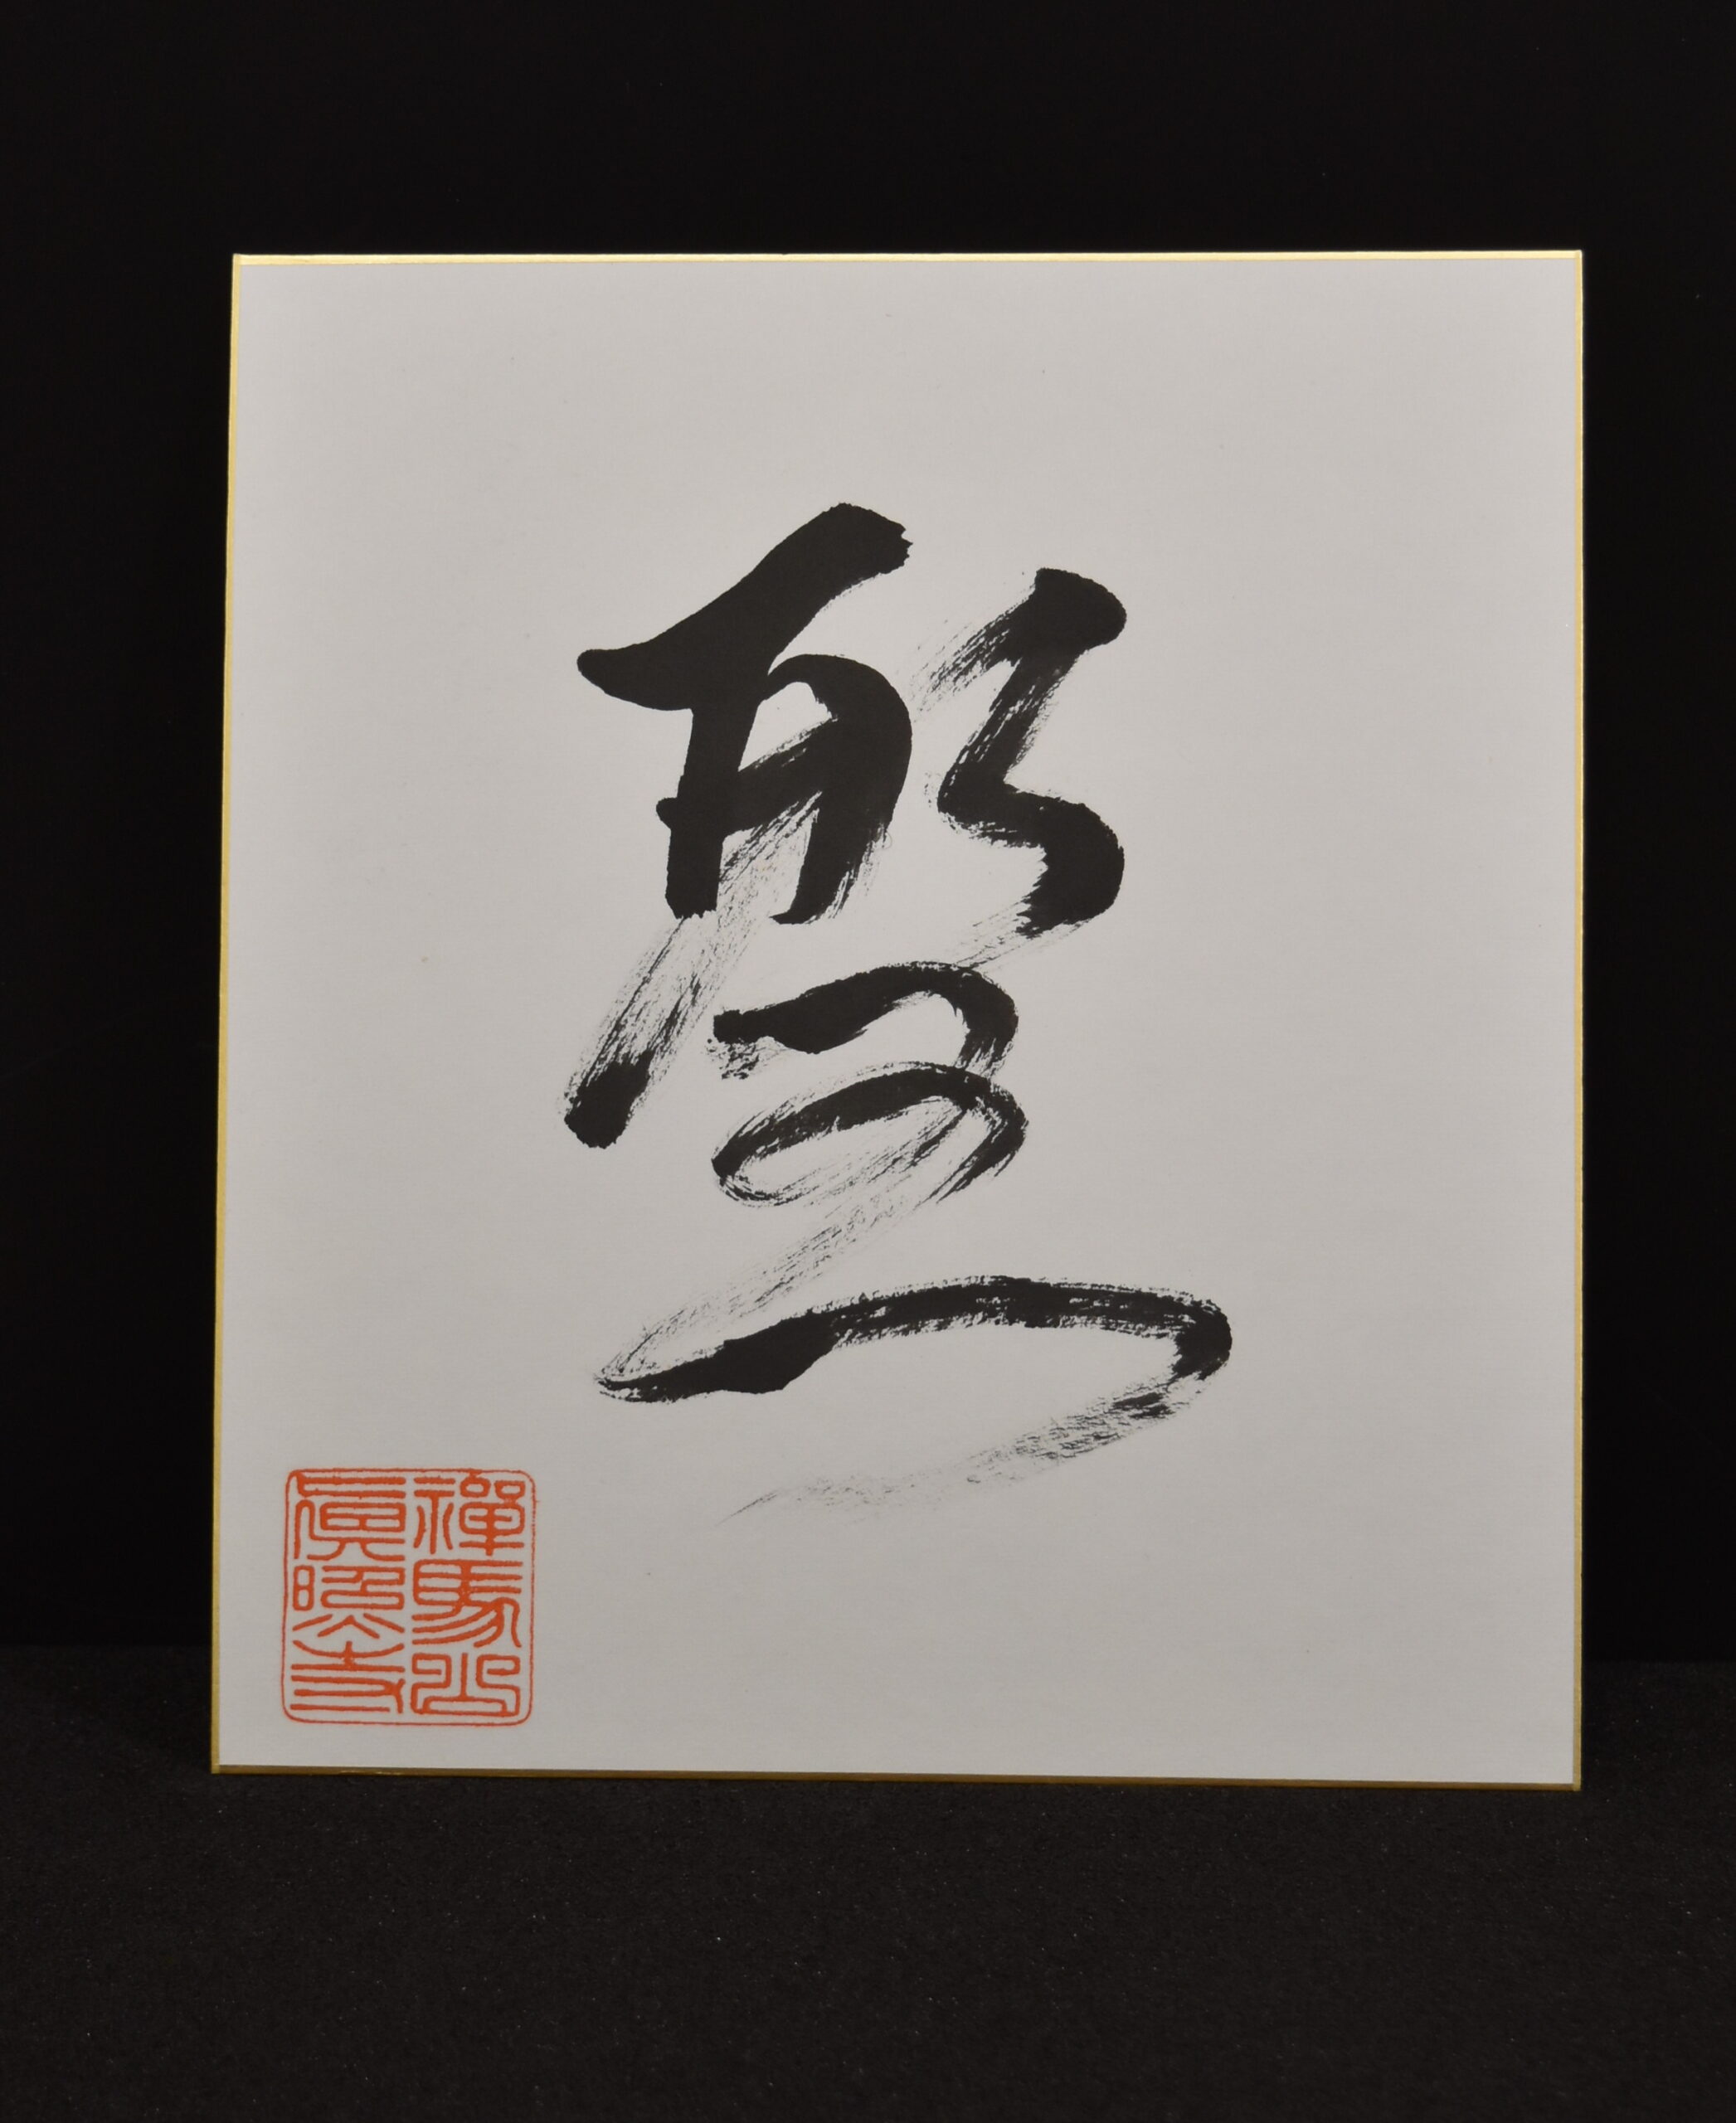 聖
禪馬山
眞照寺